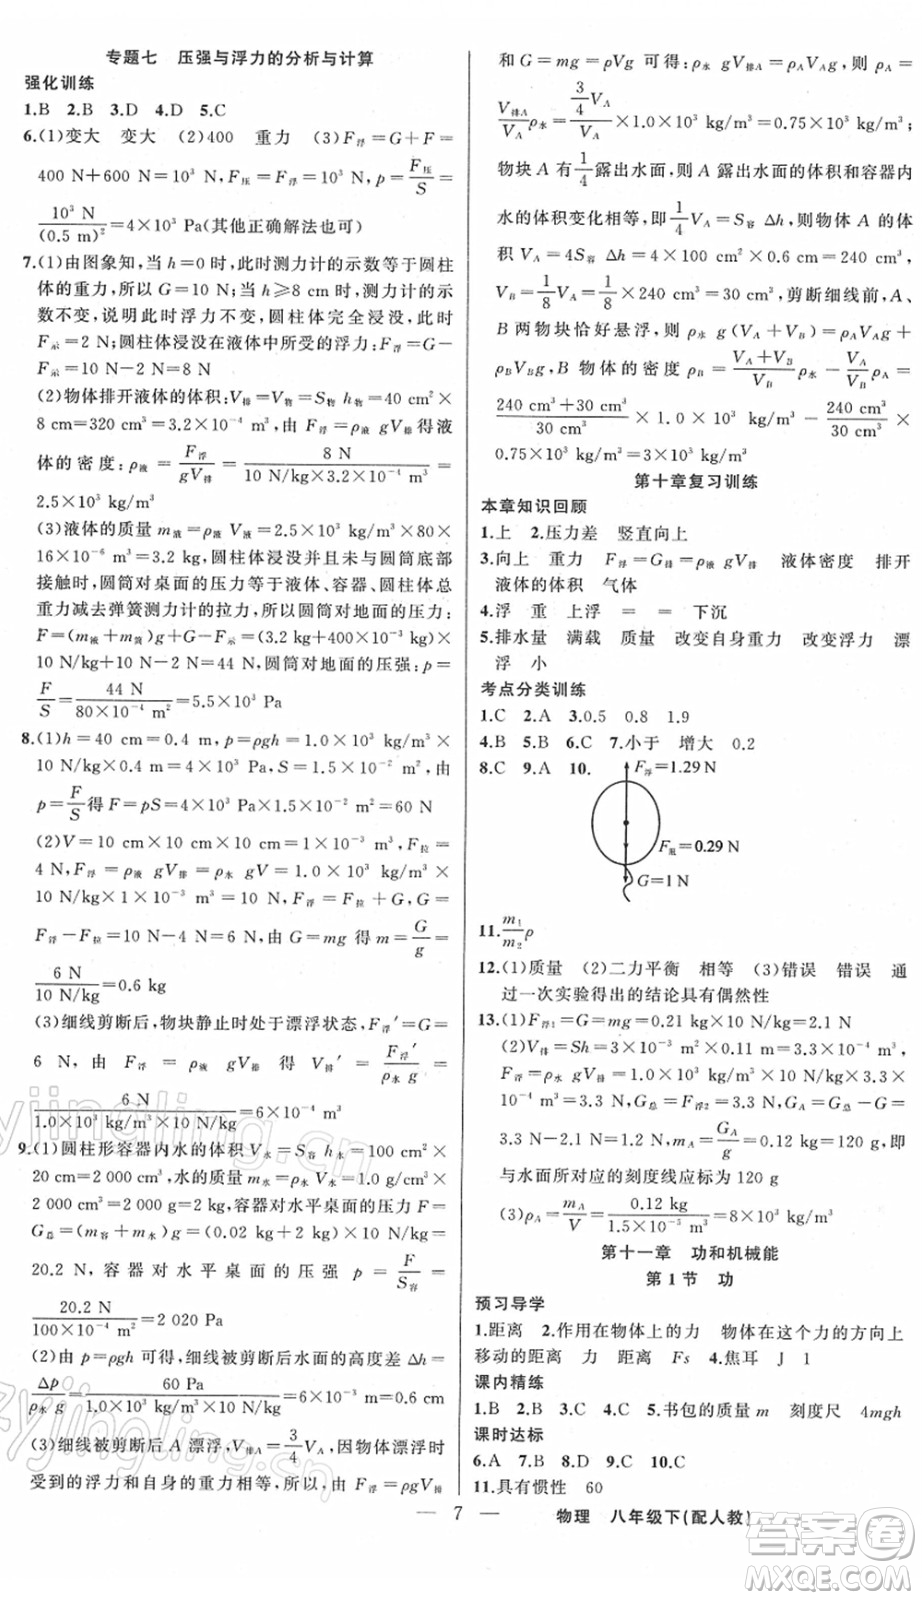 专题七 压强与浮力的分析与计算
强化训练
1.B 2.B 3.D 4.D 5.C
6.(1)变大 变大 (2)400 重力 (3)F浮=G+F=
400 N+600 N=10³ N,F压=F浮=10³ N,p=F压/S=
10³ N/(0.5 m)²=4×10³ Pa(其他正确解法也可)
7.(1)由图象知,当h=0时,此时测力计的示数等于圆柱
体的重力,所以G=10 N;当h≥8 cm时,测力计的示
数不变,说明此时浮力不变,圆柱体完全浸没,此时
F示=2 N;圆柱体浸没在液体中所受的浮力:F浮=G-
F示=10 N-2 N=8 N
(2)物体排开液体的体积:V排=V物=S物 h物=40 cm²×
8 cm=320 cm³=3.2×10⁻⁴ m³,由F浮=ρ液 gV排得液
体的密度:ρ液=F浮/gV排=8 N/(10 N/kg×3.2×10⁻⁴ m³)=
2.5×10³ kg/m³
(3)液体的质量m液=ρ液 V液=2.5×10³ kg/m³×80×
16×10⁻⁶ m³=3.2 kg,圆柱体浸没并且未与圆筒底部
接触时,圆筒对桌面的压力等于液体、容器、圆柱体总
重力减去弹簧测力计的拉力,所以圆筒对地面的压力:
F=(m液+m筒)g+G-F示=(3.2 kg+400×10⁻³ kg)×
10 N/kg+10 N-2 N=44 N,圆筒对地面的压强:p=
F/S=44 N/(80×10⁻⁴ m²)=5.5×10³ Pa
8.(1)h=40 cm=0.4 m,p=ρgh=1.0×10³ kg/m³×
10 N/kg×0.4 m=4×10³ Pa,S=1.5×10⁻² m²,由
p=F/S得F=pS=4×10³ Pa×1.5×10⁻² m²=60 N
(2)V=10 cm×10 cm×10 cm=1×10⁻³ m³,F拉=
4 N,F浮=ρ液 gV排=ρ水 gV=1.0×10³ kg/m³×10
N/kg×1×10⁻³ m³=10 N,由F浮=F拉+G,G=
F浮-F拉=10 N-4 N=6 N,由G=mg得m=G/g=
6 N/(10 N/kg)=0.6 kg
(3)细线剪断后,物块静止时处于漂浮状态,F浮′=G=
6 N,由F浮=ρ水 gV排得V排′=F浮′/ρ水 g=
6 N/(1.0×10³ kg/m³×10 N/kg)=6×10⁻⁴ m³
9.(1)圆柱形容器内水的体积V水=S容 h水=100 cm²×
20 cm=2 000 cm³,水的质量m水=ρ水 V水=1.0 g/cm³×
2 000 cm³=2 000 g=2 kg,容器对水平桌面的压力F=
G总=(m容+m水)g=(0.02 kg+2 kg)×10 N/kg=
20.2 N,容器对水平桌面的压强p=F/S容=
20.2 N/(100×10⁻⁴ m²)=2 020 Pa
(2)由p=ρgh可得,细线被剪断后水面的高度差Δh=
Δp/ρ水 g=60 Pa/(1.0×10³ kg/m³×10 N/kg)=6×10⁻³ m=0.6 cm
(3)细线被剪断后A漂浮,V排A=3/4 VA,因物体漂浮时
受到的浮力和自身的重力相等,所以,由F浮=ρgV排
和G=mg=ρVg可得:ρ水 gV排A=ρAVAg,ρA=
V排A/VA ρ水=(3/4 VA)/VA×1.0×10³ kg/m³=0.75×10³ kg/m³;
物块A有1/4露出水面,则A露出水面的体积和容器内
水的体积变化相等,即1/4 VA=S容 Δh,物块A的体
积VA=4S容 Δh=4×100 cm²×0.6 cm=240 cm³,
VB=1/8 VA=1/8×240 cm³=30 cm³,剪断细线前,A、
B两物块恰好悬浮,则ρ水 g(VA+VB)=ρAVAg+
ρBVBg,B物体的密度ρB=(VA+VB)/VB ρ水-VA/VB ρA=
(240 cm³+30 cm³)/30 cm³×1.0×10³ kg/m³-240 cm³/30 cm³×
0.75×10³ kg/m³=3×10³ kg/m³
第十章复习训练
本章知识回顾
1.上 2.压力差 竖直向上
3.向上 重力 F浮=G排=ρ液 gV排 液体密度 排开
液体的体积 气体
4.浮 重 上浮 = = 下沉
5.排水量 满载 质量 改变自身重力 改变浮力 漂
浮 小
考点分类训练
1.C 2.A 3.0.5 0.8 1.9
4.B 5.B 6.C 7.小于 增大 0.2
8.C 9.A 10.
F浮=1.29 N
F阻=0.29 N
G=1 N
11.m₁/m₂ ρ
12.(1)质量 (2)二力平衡 相等 (3)错误 错误 通
过一次实验得出的结论具有偶然性
13.(1)F浮1=G=mg=0.21 kg×10 N/kg=2.1 N
(2)V排=Sh=3×10⁻³ m²×0.11 m=3.3×10⁻⁴ m³,
F浮2=ρ水 gV排=1.0×10³ kg/m³×10 N/kg×3.3×
10⁻⁴ m³=3.3 N,G总=F浮2=3.3 N,GA=G总-G=
3.3 N-2.1 N=1.2 N,mA=GA/g=0.12 kg=120 g,即
与水面所对应的刻度线应标为120 g
(3)ρA=mA/V=0.12 kg/(1.5×10⁻⁵ m³)=8×10³ kg/m³
第十一章 功和机械能
第1节 功
预习导学
1.距离 2.作用在物体上的力 物体在这个力的方向上
移动的距离 力 距离 Fs 4.焦耳 J 1
课内精练
1.B 2.B 3.C 4.C 5.书包的质量m 刻度尺 4mgh
课时达标
6.A 7.B 8.D 9.C 10.C
11.具有惯性 60
— 7 — 物理 八年级下(配人教)
答案圈
MXQE.COM
zyjingling.cn